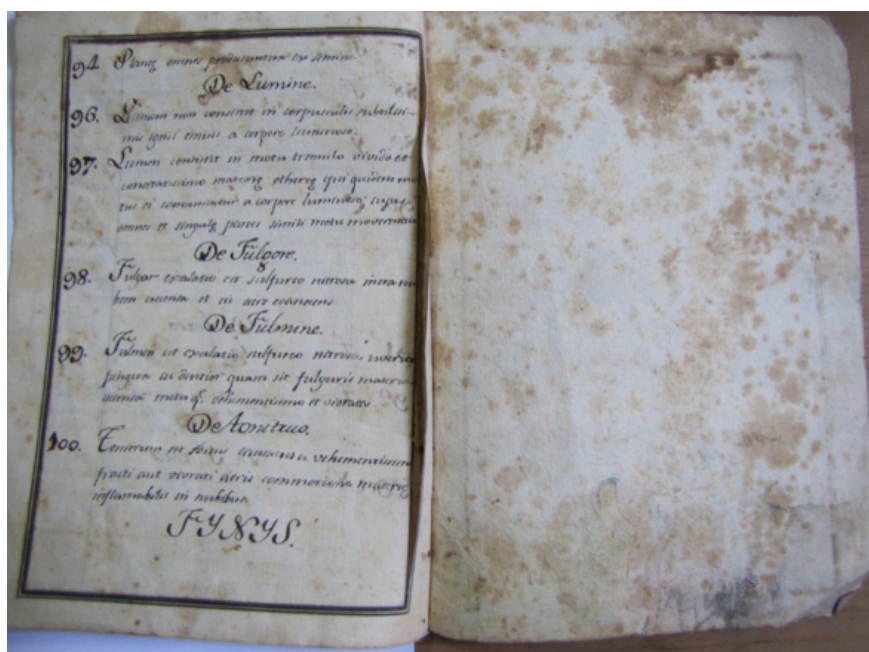 94. Plantę omnes producuntur ex semine
De Lumine.
96. Lumen non consistit in corpusculis subtilissi-
mis ignis emissis a corpore luminoso.
97. Lumen consistit in motu tremulo vivido et
concitatissimo materię ethereę qui quidem mo
tus ei comunicatur a corpore luminoso, cujus
omnes et singulę partes simili motu moventur
De Fulgore.
98. Fulgor exalatio est sulfureo nitrosa intra nu
bem accensa et in aere evanescens
De Fulmine.
99. Fulmen est exalatio sulfureo nitrosa
pinguior ac densior quam sit fulguris materia
accensa motu q. vehementissimo et vibrata
De Tonitruo.
100. Tonitruum est sonus causatus a vehementissima
fracti aut vibrati aeris commotione materię
inflamabilis in nubibus
FYNYS.